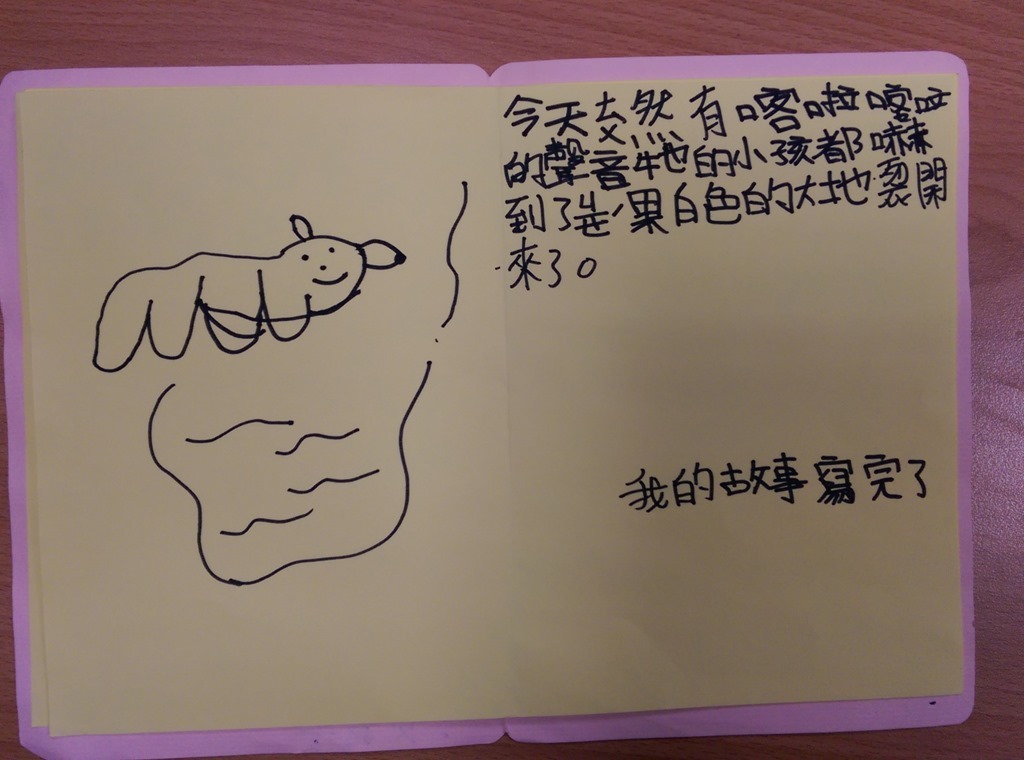 今天突然有喀啦喀啦
的聲音牠的小孩都嚇
到了是果白色的大地裂開
來了。
我的故事寫完了